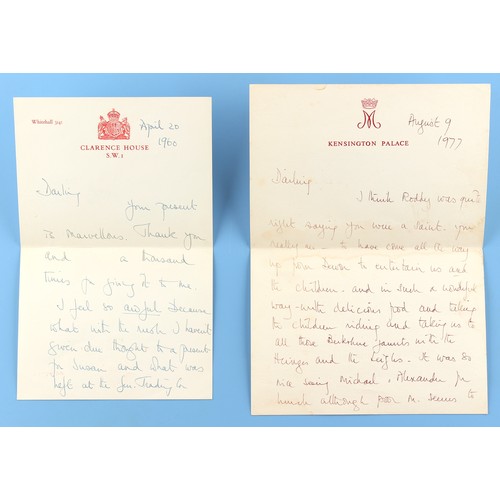 Whitehall 3141
April 20
1960
CLARENCE HOUSE
S.W. 1
Darling
Your present
is marvellous. Thank you
and a thousand
times for giving it to me.
I feel so awful because
what with the rush I haven't
given due thought to a present
for Susan and what was
left at the Gen. Trading Co
M
August 9
1977
KENSINGTON PALACE
Darling
I think Roddy was quite
right saying you were a saint. You
really are - to have come all the way
up from Devon to entertain us and
the children. and in such a wonderful
way - with delicious food and taking
the children riding and taking us to
all those Berkshire jaunts with the
and the Leighs. It was so
nice seeing Michael & Alexander for
lunch although poor M. seems to